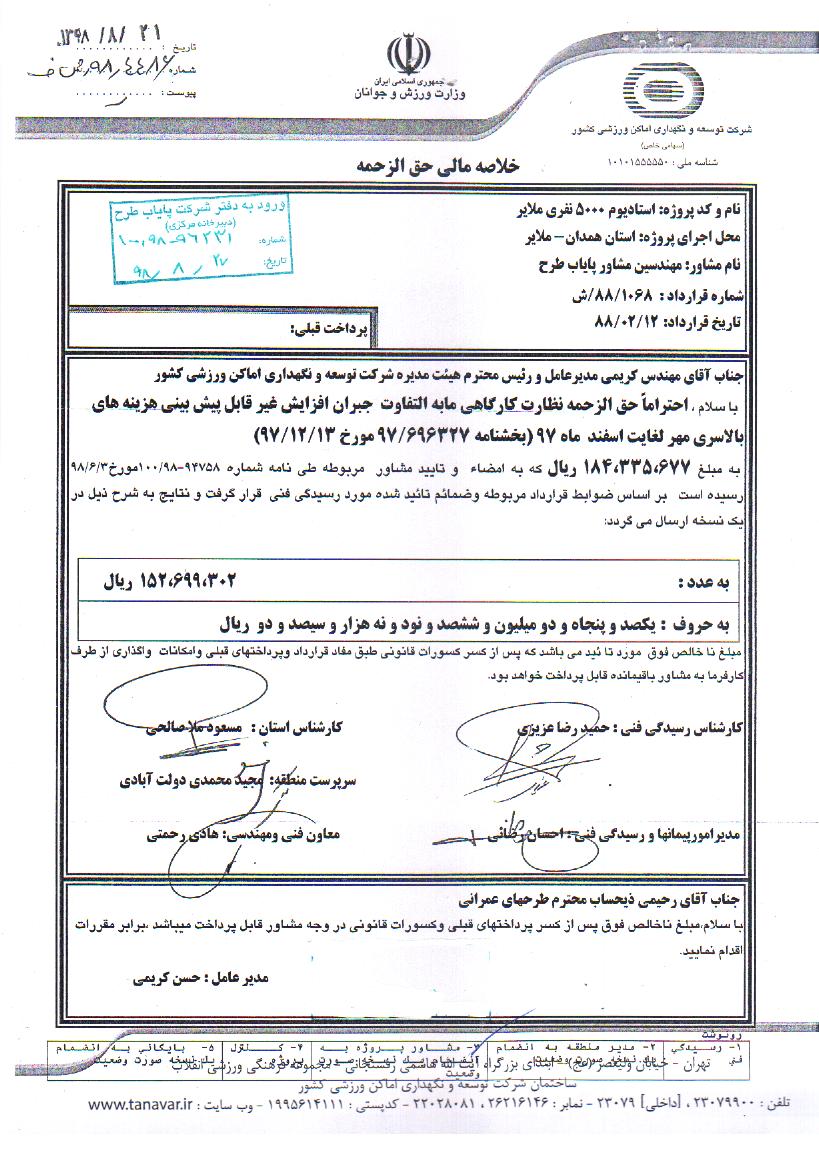 تاریخ : ۱۳۹۸/۸/۲۱
شماره
پیوست :
جمهوری اسلامی ایران
وزارت ورزش و جوانان
شرکت توسعه و نگهداری اماکن ورزشی کشور
(سهامی خاص)
شناسه ملی : ۱۰۱۰۱۵۵۵۵۵۰
خلاصه مالی حق الزحمه
ورود به دفتر شرکت پایاب طرح
(دبیرخانه مرکزی)
شماره: ۱۰۰،۹۸-۹۶۲۳۱
تاریخ: ۹۸/۸/۲۷
نام و کد پروژه: استادیوم ۵۰۰۰ نفری ملایر
محل اجرای پروژه: استان همدان – ملایر
نام مشاور: مهندسین مشاور پایاب طرح
شماره قرارداد : ۸۸/۱۰۶۸/ش
تاریخ قرارداد: ۸۸/۰۲/۱۲
پرداخت قبلی:
جناب آقای مهندس کریمی مدیرعامل و رئیس محترم هیئت مدیره شرکت توسعه و نگهداری اماکن ورزشی کشور
با سلام ، احتراماً حق الزحمه نظارت کارگاهی مابه التفاوت جبران افزایش غیر قابل پیش بینی هزینه های
بالاسری مهر لغایت اسفند ماه ۹۷ (بخشنامه ۹۷/۶۹۶۳۲۷ مورخ ۹۷/۱۲/۱۳)
به مبلغ ۱۸۴،۳۳۵،۶۷۷ ریال که به امضاء و تایید مشاور مربوطه طی نامه شماره ۹۴۷۵۸-۱۰۰/۹۸مورخ۹۸/۶/۳
رسیده است بر اساس ضوابط قرارداد مربوطه وضمائم تائید شده مورد رسیدگی فنی قرار گرفت و نتایج به شرح ذیل در
یک نسخه ارسال می گردد:
به عدد : ۱۵۲،۶۹۹،۳۰۲ ریال
به حروف : یکصد و پنجاه و دو میلیون و ششصد و نود و نه هزار و سیصد و دو ریال
مبلغ نا خالص فوق مورد تا ئید می باشد که پس از کسر کسورات قانونی طبق مفاد قرارداد وپرداختهای قبلی وامکانات واگذاری از طرف
کارفرما به مشاور باقیمانده قابل پرداخت خواهد بود.
کارشناس رسیدگی فنی : حمید رضا عزیزی
کارشناس استان : مسعود ملاصالحی
سرپرست منطقه: مجید محمدی دولت آبادی
مدیرامورپیمانها و رسیدگی فنی: احسان رضائی
معاون فنی ومهندسی: هادی رحمتی
جناب آقای رحیمی ذیحساب محترم طرحهای عمرانی
با سلام،مبلغ ناخالص فوق پس از کسر پرداختهای قبلی وکسورات قانونی در وجه مشاور قابل پرداخت میباشد ،برابر مقررات
اقدام نمایید.
مدیر عامل : حسن کریمی
رونوشت
۱- رسیدگی فنی
۲- مدیر منطقه به انضمام یک نسخه صورت وضعیت
۳- مشاور پروژه به انضمام یک نسخه صورت وضعیت
۴- کنترل پروژه
۵- بایگانی به انضمام یک نسخه صورت وضعیت
تهران - خیابان ولیعصر (عج) - ابتدای بزرگراه آیت الله هاشمی رفسنجانی - مجموعه فرهنگی ورزشی انقلاب
ساختمان شرکت توسعه و نگهداری اماکن ورزشی کشور
تلفن : ۲۳۰۷۹۹۰۰ ، [داخلی] ۲۳۰۷۹ - نمابر : ۲۶۲۱۶۱۴۶ ، ۲۲۰۲۸۰۸۱ - کدپستی : ۱۹۹۵۶۱۴۱۱۱ - وب سایت : www.tanavar.ir